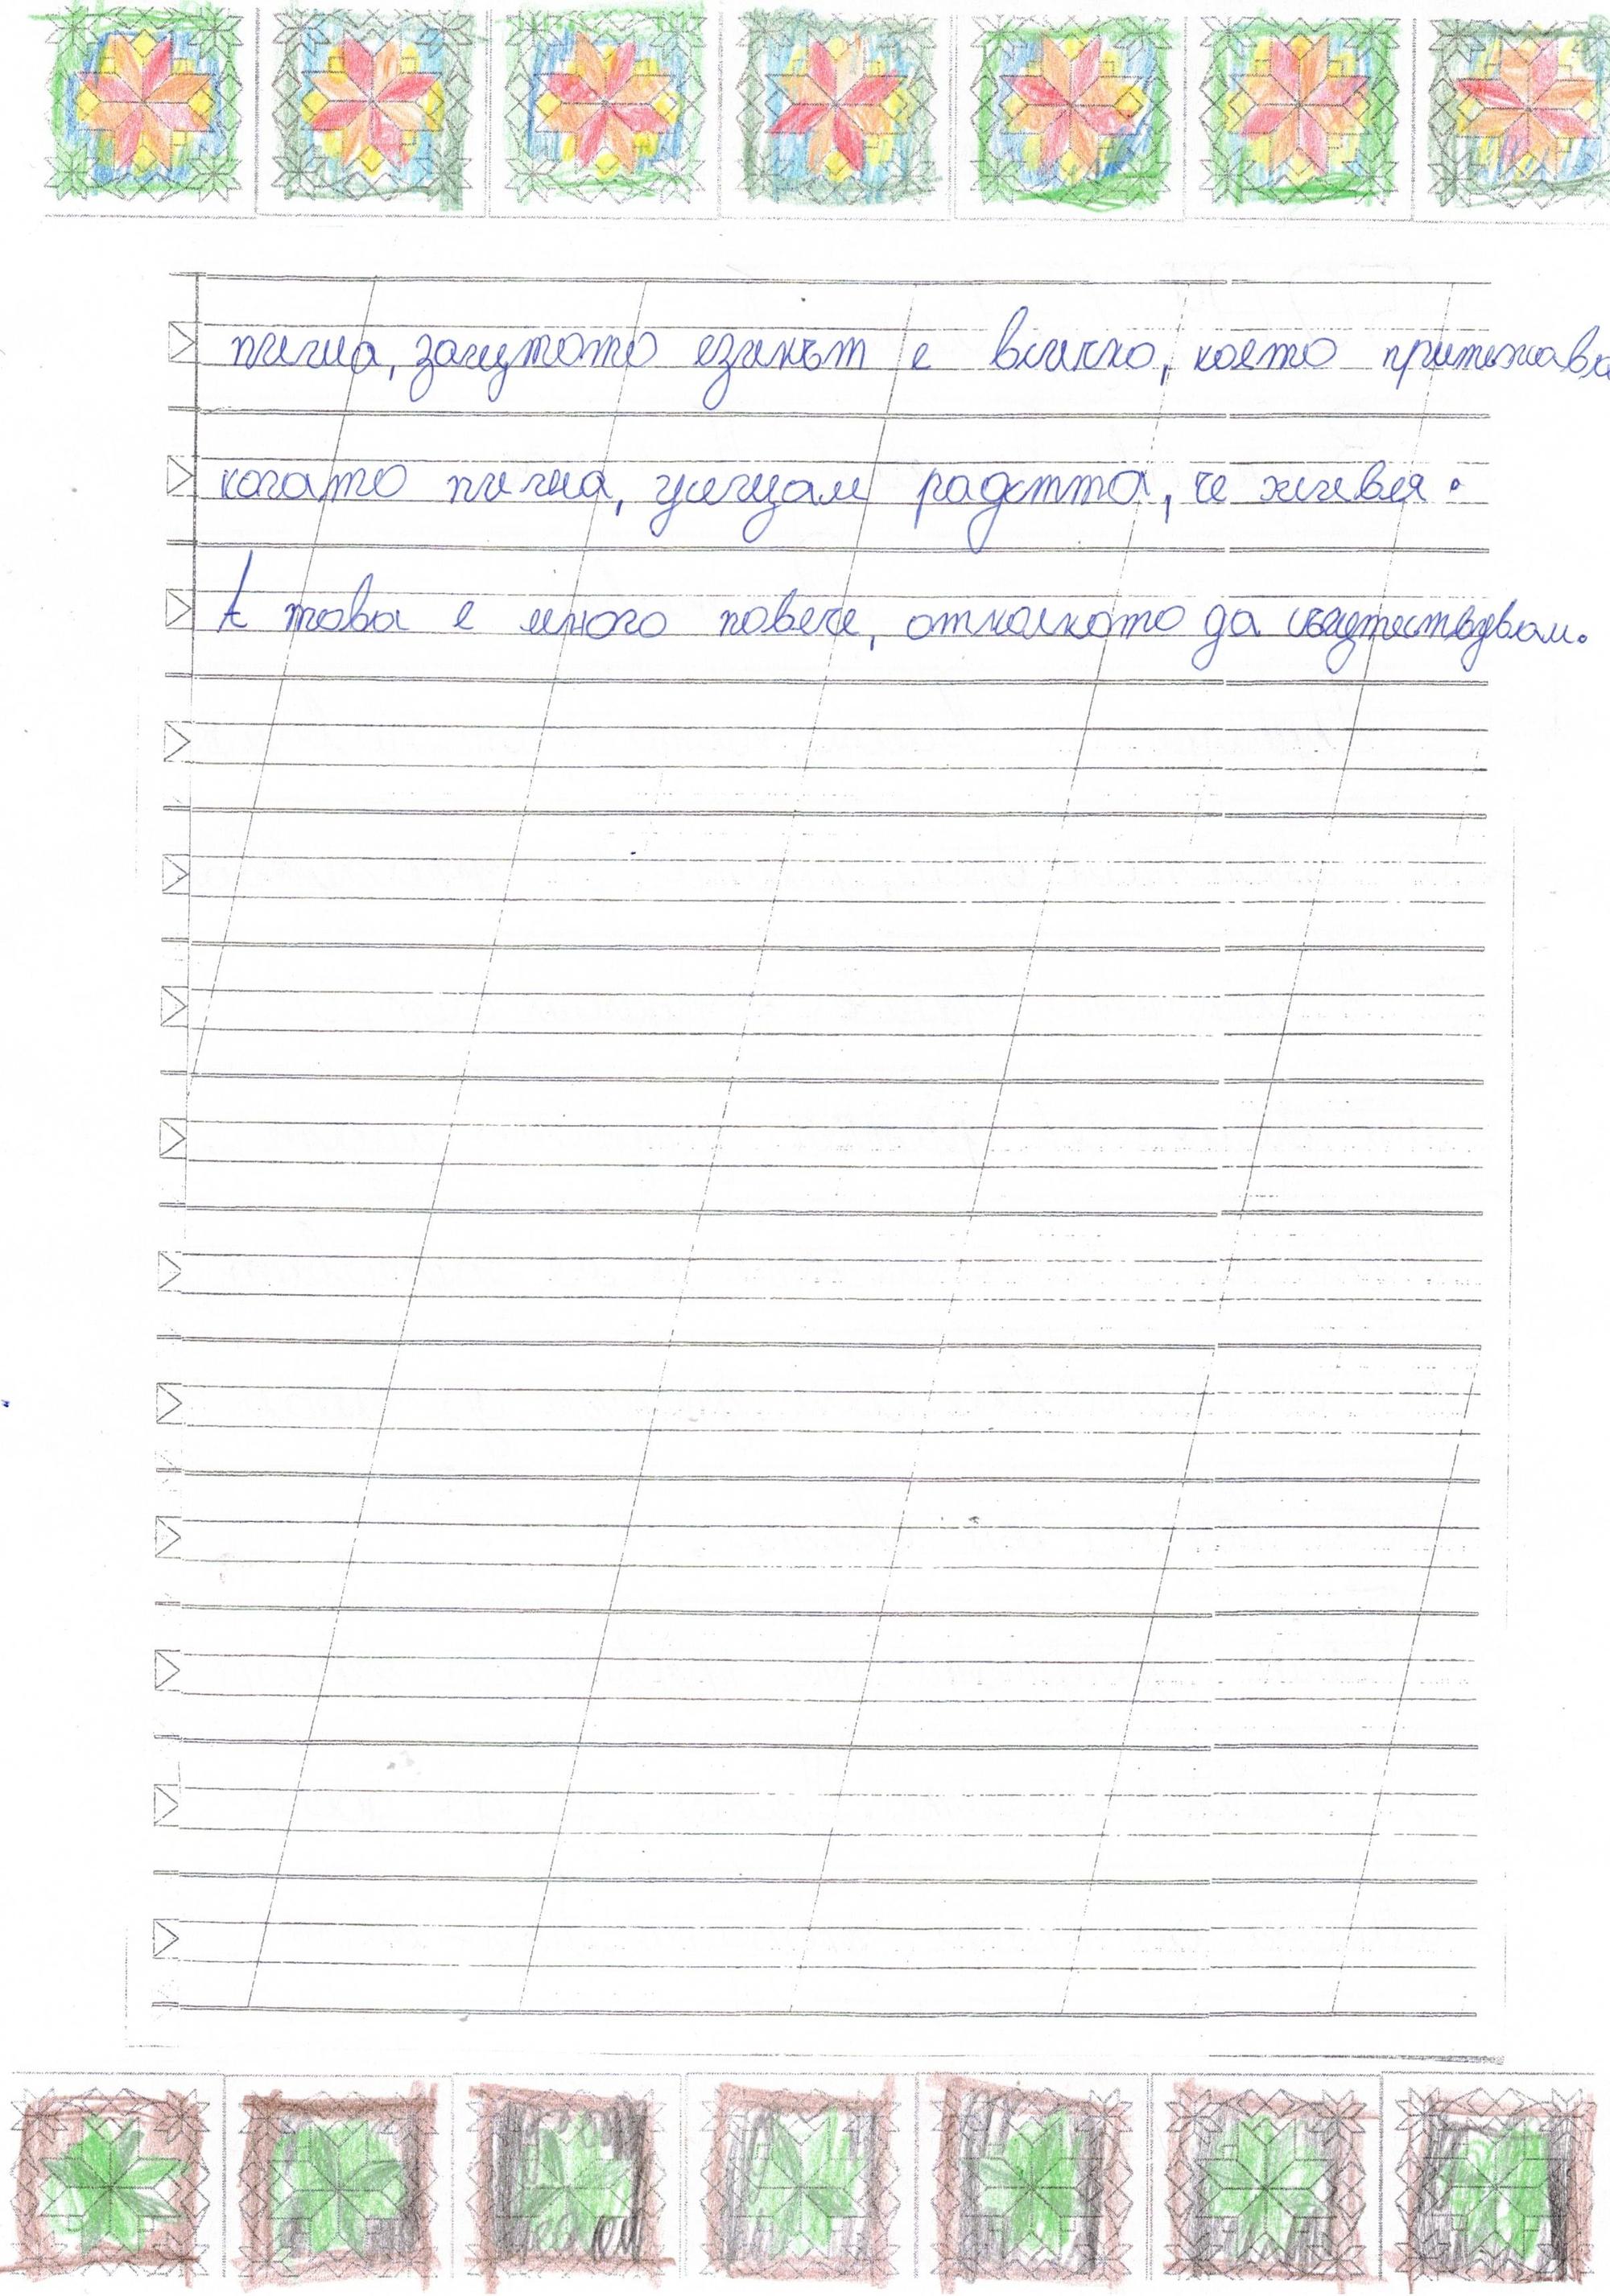 пиша, защото езикът е всичко, което притежава
когато пиша, усещам радостта, че живея.
А това е много повече, отколкото да съществувам.